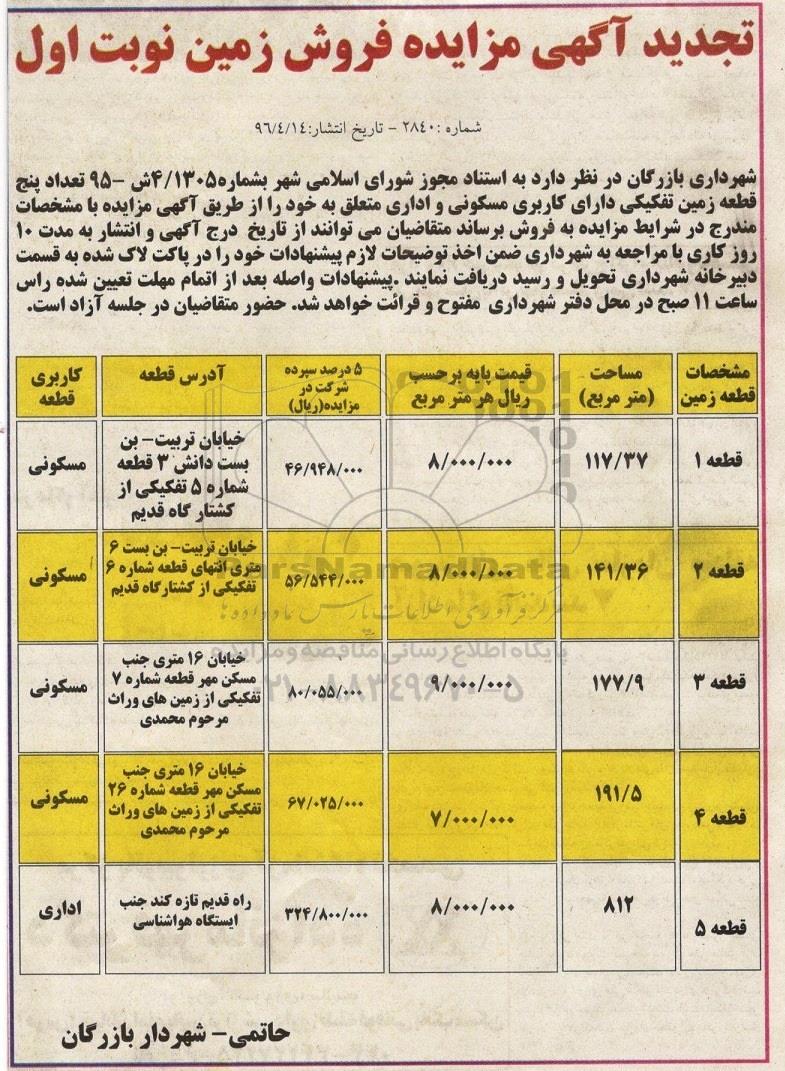 تجدید آگهی مزایده فروش زمین نوبت اول
شماره :۲۸۴۰ - تاریخ انتشار:۹۶/۴/۱۴
شهرداری بازرگان در نظر دارد به استناد مجوز شورای اسلامی شهر بشماره۴/۱۳۰۵ش -۹۵ تعداد پنج
قطعه زمین تفکیکی دارای کاربری مسکونی و اداری متعلق به خود را از طریق آگهی مزایده با مشخصات
مندرج در شرایط مزایده به فروش برساند متقاضیان می توانند از تاریخ درج آگهی و انتشار به مدت ۱۰
روز کاری با مراجعه به شهرداری ضمن اخذ توضیحات لازم پیشنهادات خود را در پاکت لاک شده به قسمت
دبیرخانه شهرداری تحویل و رسید دریافت نمایند .پیشنهادات واصله بعد از اتمام مهلت تعیین شده راس
ساعت ۱۱ صبح در محل دفتر شهرداری مفتوح و قرائت خواهد شد. حضور متقاضیان در جلسه آزاد است.
مشخصات
قطعه زمین
مساحت
(متر مربع)
قیمت پایه برحسب
ریال هر متر مربع
۵ درصد سپرده
شرکت در
مزایده(ریال)
آدرس قطعه
کاربری
قطعه
قطعه ۱
۱۱۷/۳۷
۸/۰۰۰/۰۰۰
۴۶/۹۴۸/۰۰۰
خیابان تربیت- بن
بست دانش ۳ قطعه
شماره ۵ تفکیکی از
کشتار گاه قدیم
مسکونی
قطعه ۲
۱۴۱/۳۶
۸/۰۰۰/۰۰۰
۵۶/۵۴۴/۰۰۰
خیابان تربیت- بن بست ۶
متری انتهای قطعه شماره ۶
تفکیکی از کشتارگاه قدیم
مسکونی
قطعه ۳
۱۷۷/۹
۹/۰۰۰/۰۰۰
۸۰/۰۵۵/۰۰۰
خیابان ۱۶ متری جنب
مسکن مهر قطعه شماره ۷
تفکیکی از زمین های وراث
مرحوم محمدی
مسکونی
قطعه ۴
۱۹۱/۵
۷/۰۰۰/۰۰۰
۶۷/۰۲۵/۰۰۰
خیابان ۱۶ متری جنب
مسکن مهر قطعه شماره ۲۶
تفکیکی از زمین های وراث
مرحوم محمدی
مسکونی
قطعه ۵
۸۱۲
۸/۰۰۰/۰۰۰
۳۲۴/۸۰۰/۰۰۰
راه قدیم تازه کند جنب
ایستگاه هواشناسی
اداری
حاتمی- شهردار بازرگان
ParsNamadData
مرکز فرآوری اطلاعات پارس نماد داده ها
پایگاه اطلاع رسانی مناقصه و مزایده
۰۲۱-۸۸۳۴۹۶۷۰-۵